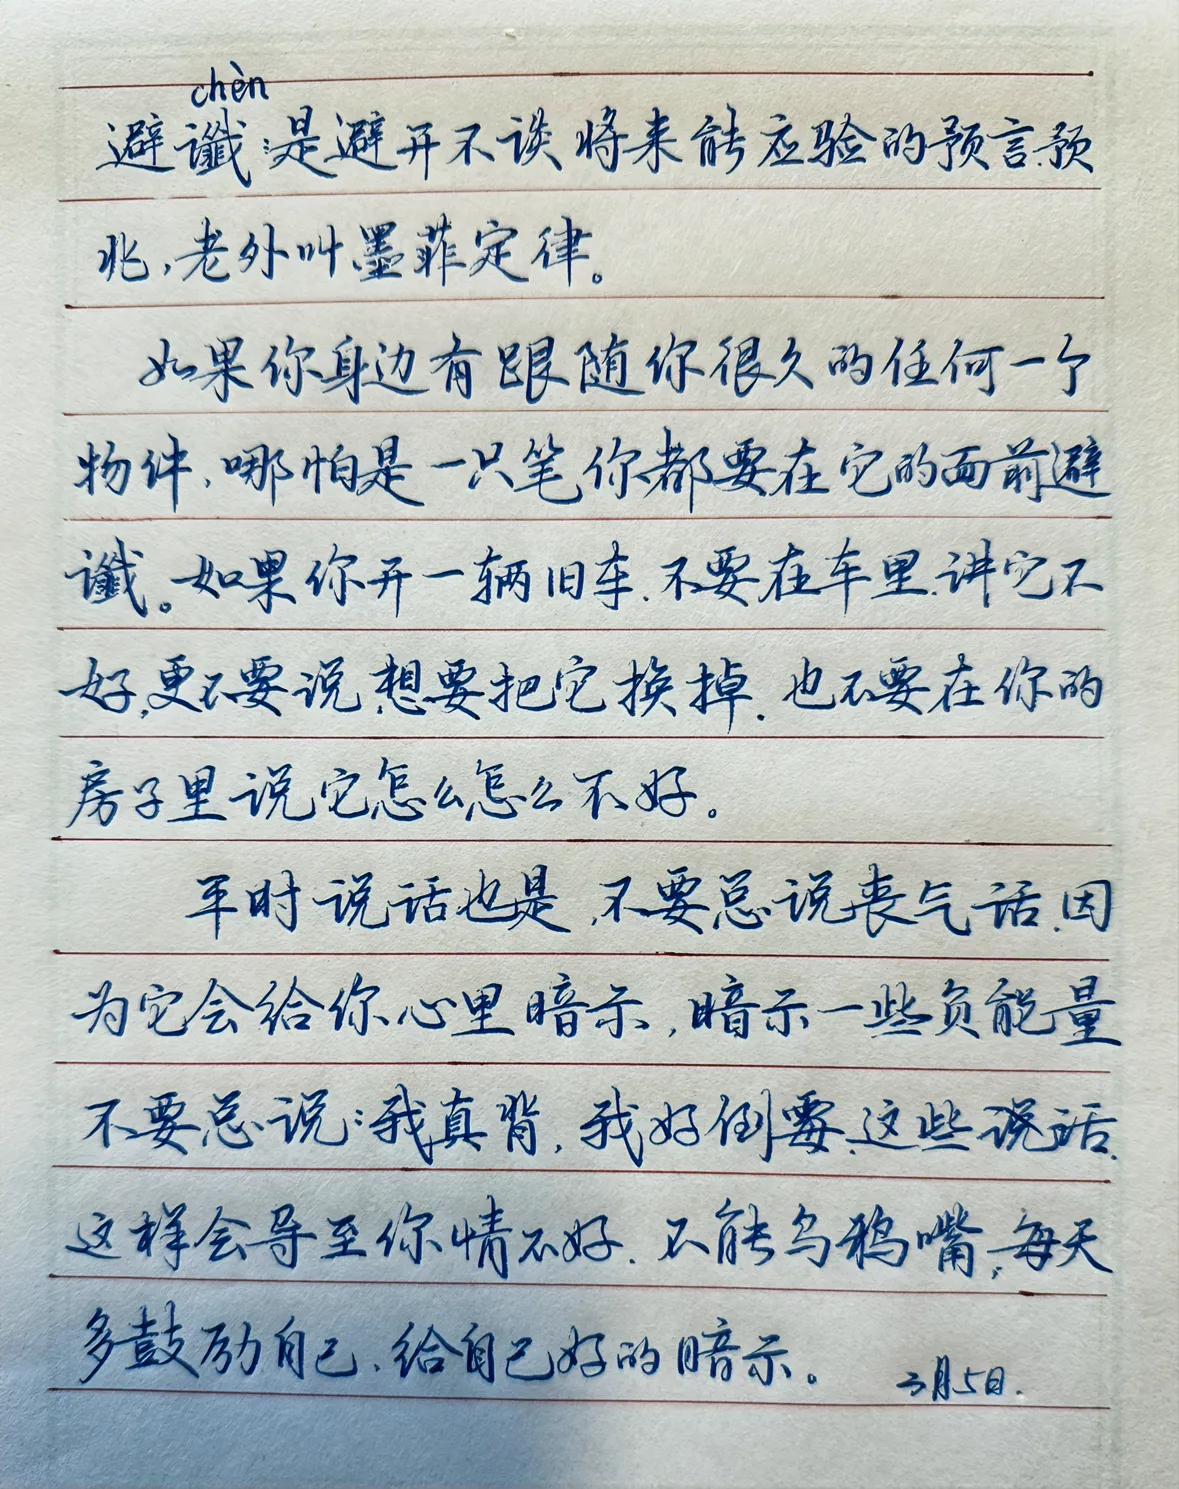 chèn
避谶:是避开不谈将来能应验的预言.预
兆,老外叫墨菲定律。
如果你身边有跟随你很久的任何一个
物件、哪怕是一只笔你都要在它的面前避
谶。如果你开一辆旧车.不要在车里.讲它不
好,更不要说,想要把它换掉.也不要在你的
房子里说它怎么怎么不好。
平时说话也是.不要总说丧气话.因
为它会给你心里暗示,暗示一些负能量
不要总说:我真背,我好倒霉.这些说话.
这样会导至你情不好.不能乌鸦嘴,每天
多鼓励自己.给自己好的暗示。
3月5日.